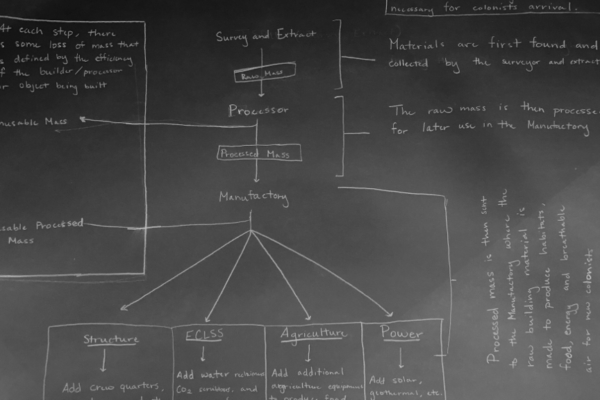 necessary for colonists arrival.
At each step, there
is some loss of mass that
is defined by the efficiency
of the builder/processor
or object being built
unusable Mass
usable Processed
Mass
Survey and Extract
Raw Mass
Processor
Processed Mass
Manufactory
Materials are first found and
collected by the surveyor and extract
The raw mass is then processe
for later use in the Manufactory
Processed mass is then sent
to the Manufactory where the
raw building material is
made to produce habitats,
food, energy and breathable
air for new colonists
Structure
Add crew quarters,
ECLSS
Add water
CO2 and
Agriculture
Add additional
agriculture equipment
to produce food
Power
Add solar,
geothermal, etc.